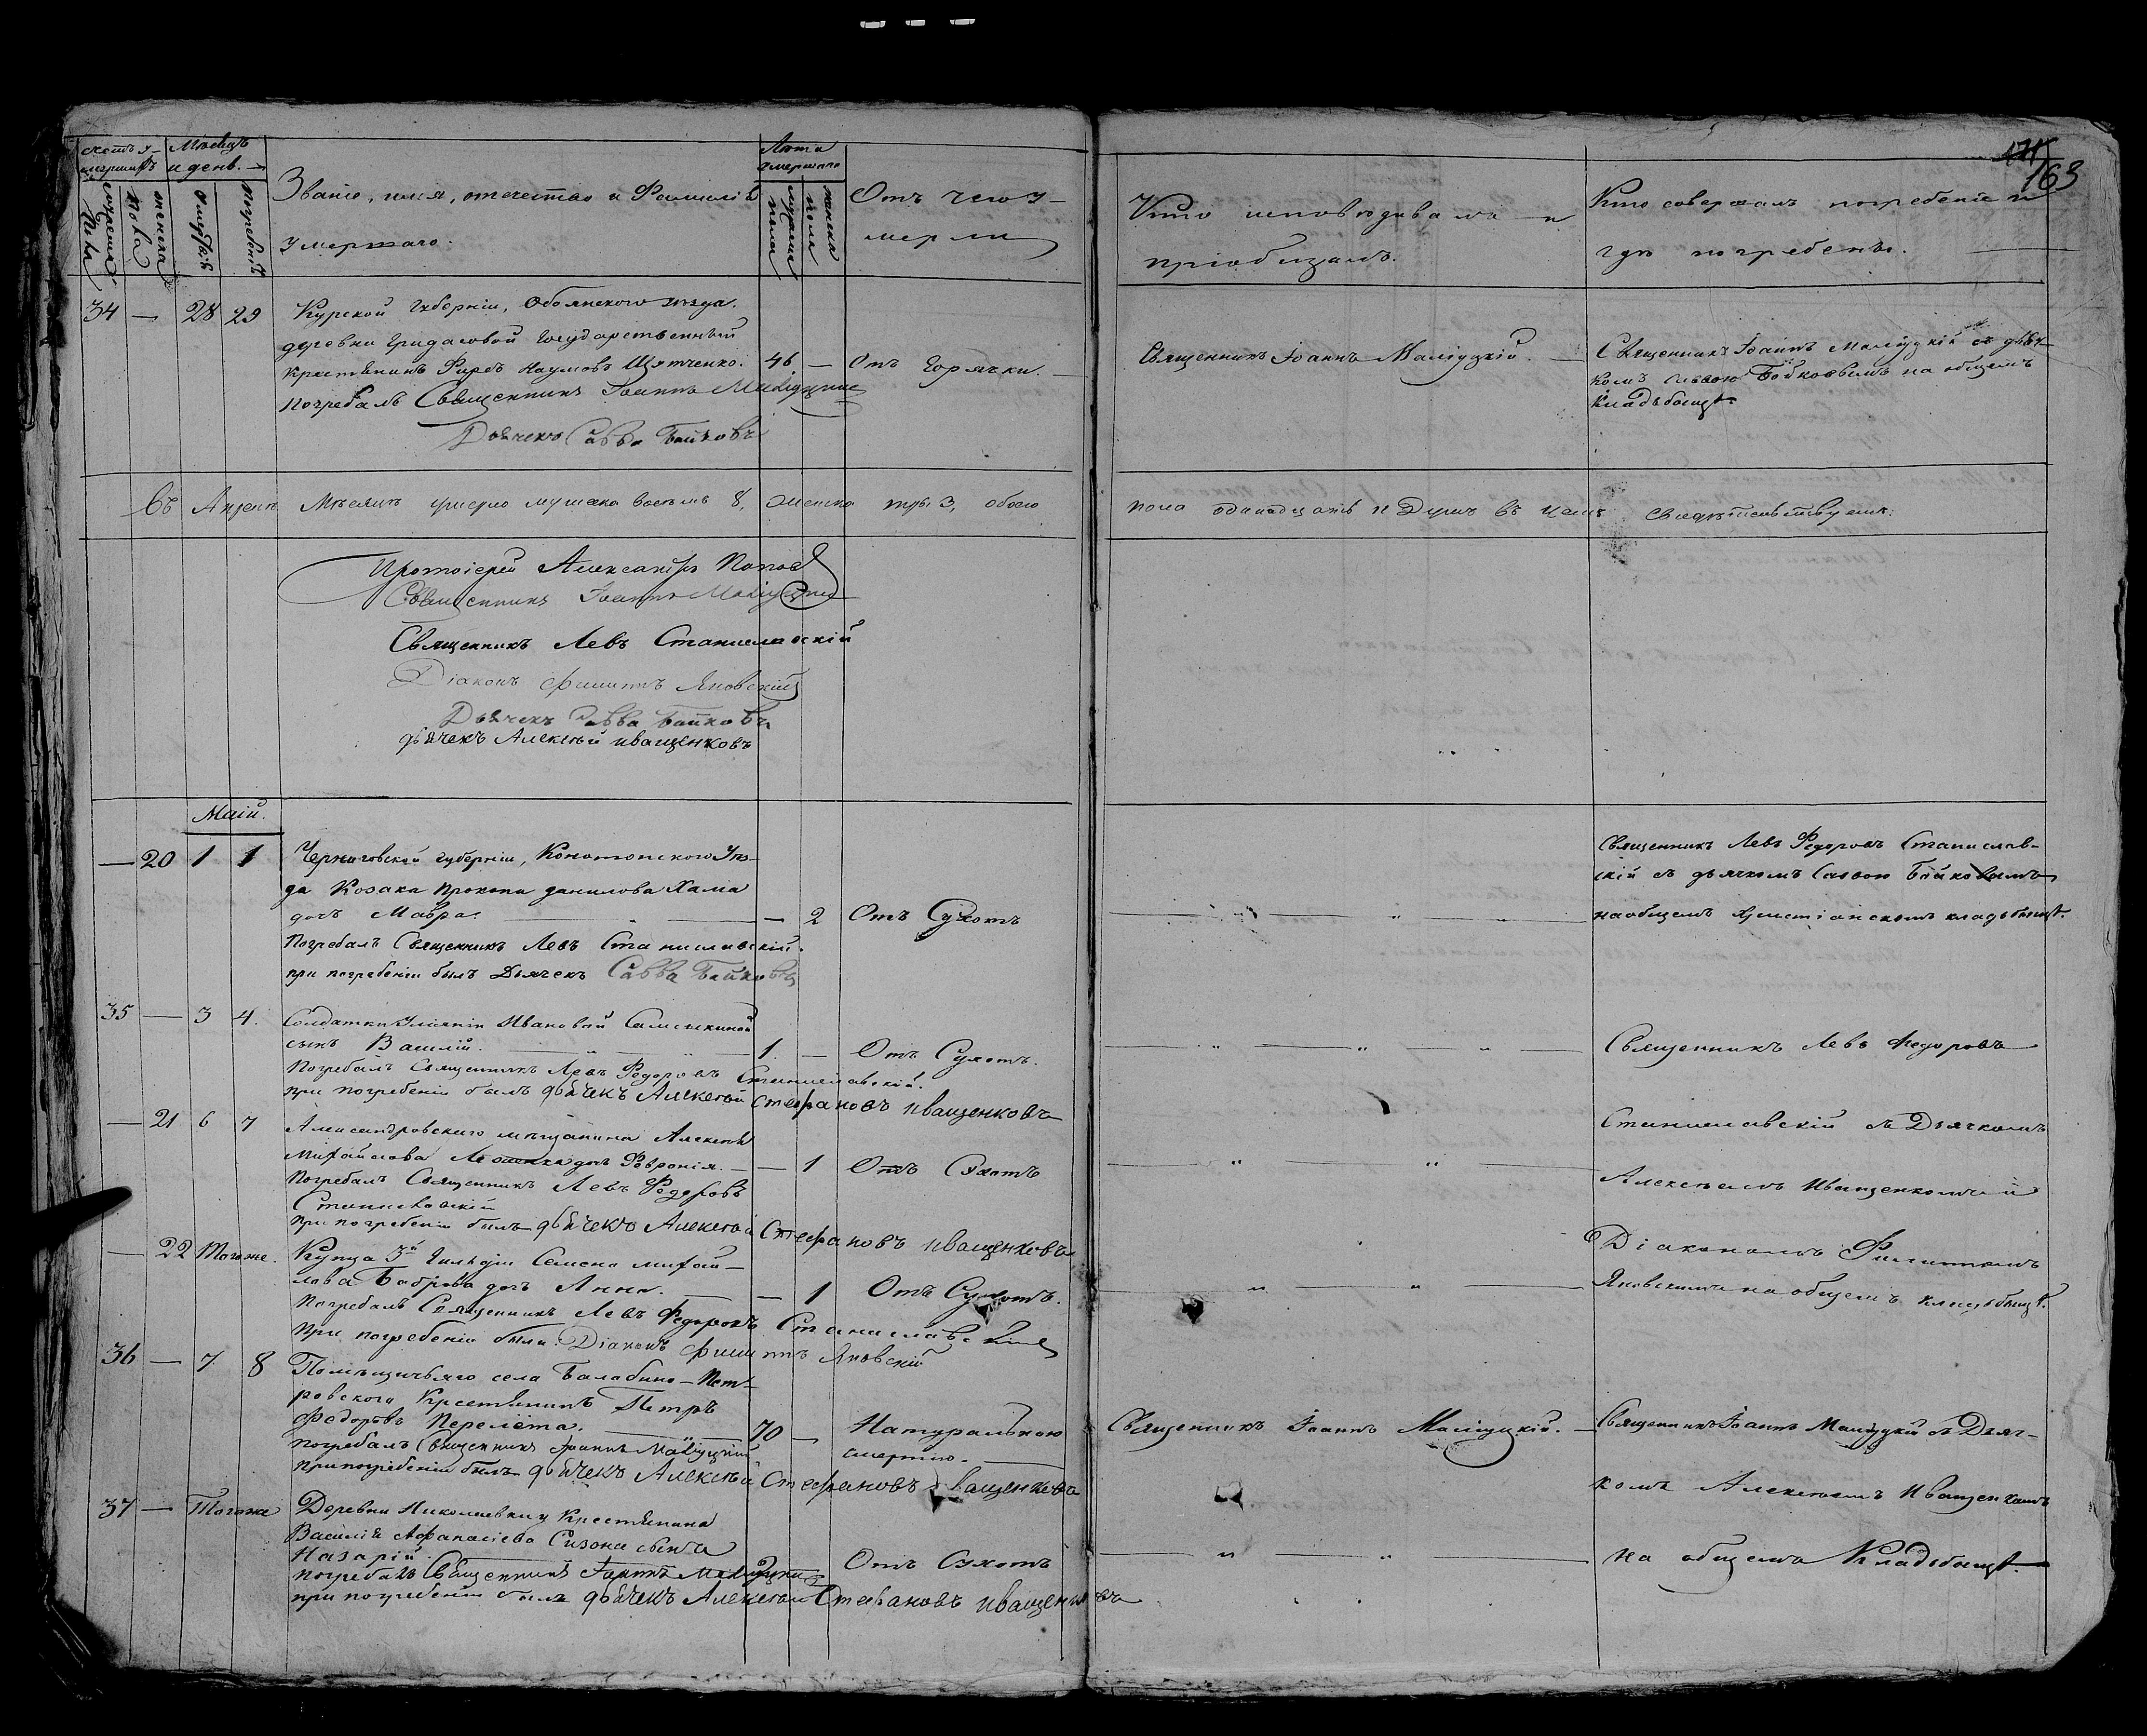 171
163
Счетъ у-
мершихъ
Мѣсяцъ
и день.
Лѣта
умершаго
мужеска
пола
женска
Умерт.
погребен.
Званіе, имя, отечество и Фамилія
умершаго.
мужеска
пола
женска
пола
Отъ чего у-
мерли
Кто исповѣдывалъ и
пріобщалъ.
Кто совершалъ погребеніе и
гдѣ погребены.
34 — 28 29 Курской Губерніи, Обоянского уѣзда.
деревни Гридасовой Государственный
крестьянинъ Фирсъ Наумовъ Щетченко. 46. — Отъ Горячки. —
Погребалъ Священникъ Іоаннъ Малѣуцкій
Дьячекъ Савва Байковъ
Священникъ Іоаннъ Малѣуцкій. —
Священникъ Іоаннъ Малѣуцкій съ дьяч-
комъ Саввою Байковымъ на общемъ
кладьбищѣ.
Въ Апрелѣ Мѣсяцѣ умерло мужеска восѣмъ 8, женска три 3, обоего
пола одинадцать 11 Душъ въ чемъ свидѣтельствуемъ.
Протоіерей Александръ Поповъ
Священникъ Іоаннъ Малѣуцкій
Священникъ Левъ Станиславскій
Діаконъ Филиппъ Яновскій
Дьячекъ Савва Байковъ
дьячекъ Алексѣй Иващенковъ
Маій.
— 20 1 1 Черниговской губерніи, Конотопского Уѣз-
да Козака Прокопа данилова Хама
дочъ Мавра. — 2 Отъ Сухотъ
Погребалъ Священникъ Левъ Станиславскій.
при погребеніи былъ Дьячекъ Савва Байковъ
Священникъ Левъ Федоровъ Станислав-
скій съ дьячкомъ Саввою Байковымъ
на общемъ христіанскомъ кладьбищѣ.
35 — 3 4. Солдатки Уліяніи Ивановой
сынъ Василій. 1. — Отъ Сухотъ.
Погребалъ Священникъ Левъ Федоровъ Станиславскій.
при погребеніи былъ дьячекъ Алексѣй Стефановъ Иващенковъ
Священникъ Левъ Федоровъ
— 21 6 7 Александровского мѣщанина Алексѣя
Михайлова дочъ Февронія. — — 1 Отъ Сухотъ
Погребалъ Священникъ Левъ Федоровъ
Станиславскій
при погребеніи былъ дьячекъ Алексѣй Стефановъ Иващенковъ
Станиславскій съ Дьячкомъ
Алексѣемъ Иващенкомъ и
— 22 Тогоже. Купца 3й Гильдіи Семена Михай-
лова Боброва дочъ Анна. — 1 Отъ Сухотъ.
Погребалъ Священникъ Левъ Федоровъ Станиславскій
При погребеніи были: Діаконъ Филиппъ Яновскій
Діакономъ Филиппомъ
Яновскимъ на общемъ кладьбищѣ.
36 — 7 8 Помѣщичьяго села Балабино-Пет-
ровского Крестьянинъ Петръ
Федоровъ Перелёта. 70 — Натуральною
смертію.
погребалъ Священникъ Іоаннъ Малѣуцкій
при погребеніи былъ дьячекъ Алексѣй Стефановъ Иващенковъ
Священникъ Іоаннъ Малѣуцкій. —
Священникъ Іоаннъ Малѣуцкій съ Дьяч-
комъ Алексѣемъ Иващенкомъ
37 — Тогоже Деревни Николаевки Крестьянина
Василія Афанасіева Сизона сынъ
Назарій 2 Отъ Сухотъ
погребалъ Священникъ Іоаннъ Малѣуцкій
при погребеніи былъ дьячекъ Алексѣй Стефановъ Иващенковъ
на общемъ Кладьбищѣ.